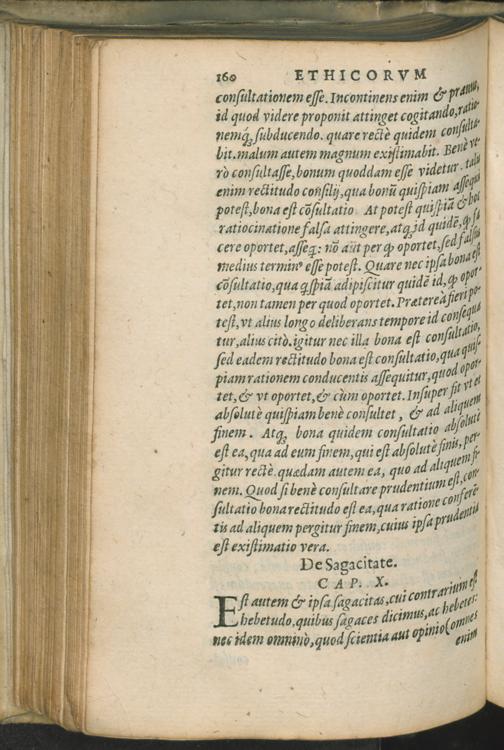 160 ETHICORVM
consultationem esse. Incontinens enim & prauus,
id quod videre proponit attinget cogitando, ratio-
nemq́; subducendo. quare rectè quidem consulta-
bit. malum autem magnum existimabit. Benè ve-
rò consultasse, bonum quoddam esse videtur. talis
enim rectitudo consilij, qua bonũ quispiam assequi
potest, bona est cõsultatio. At potest quispiã & hoc
ratiocinatione falsa attingere, atq; id quidẽ, qđ fa
cere oportet, asseq: nõ aũt per qđ oportet, sed falsus
medius terminᵒ esse potest. Quare nec ipsa bona est
cõsultatio, qua qspiã adipiscitur quidẽ id, qđ opor-
tet, non tamen per quod oportet. Prætereà fieri po-
test, vt alius longo deliberans tempore id consequa
tur, alius citò. igitur nec illa bona est consultatio,
sed eadem rectitudo bona est consultatio, qua quis-
piam rationem conducentis assequitur, quod opor-
tet, & vt oportet, & cùm oportet. Insuper fit vt et
absolutè quispiam benè consultet, & ad aliquem
finem. Atq; bona quidem consultatio absolutè
est ea, qua ad eum finem, qui est absolutè finis, per-
gitur rectè. quædam autem ea, quo ad aliquem fi-
nem. Quod si benè consultare prudentium est, con-
sultatio bona rectitudo est ea, qua ratione conferẽ-
tis ad aliquem pergitur finem, cuius ipsa prudentia
est existimatio vera.
De Sagacitate.
CAP. X.
Est autem & ipsa sagacitas, cui contrarium est
hebetudo, quibus sagaces dicimus, ac hebetes:
nec idem omninò, quod scientia aut opinio (omnes
enim